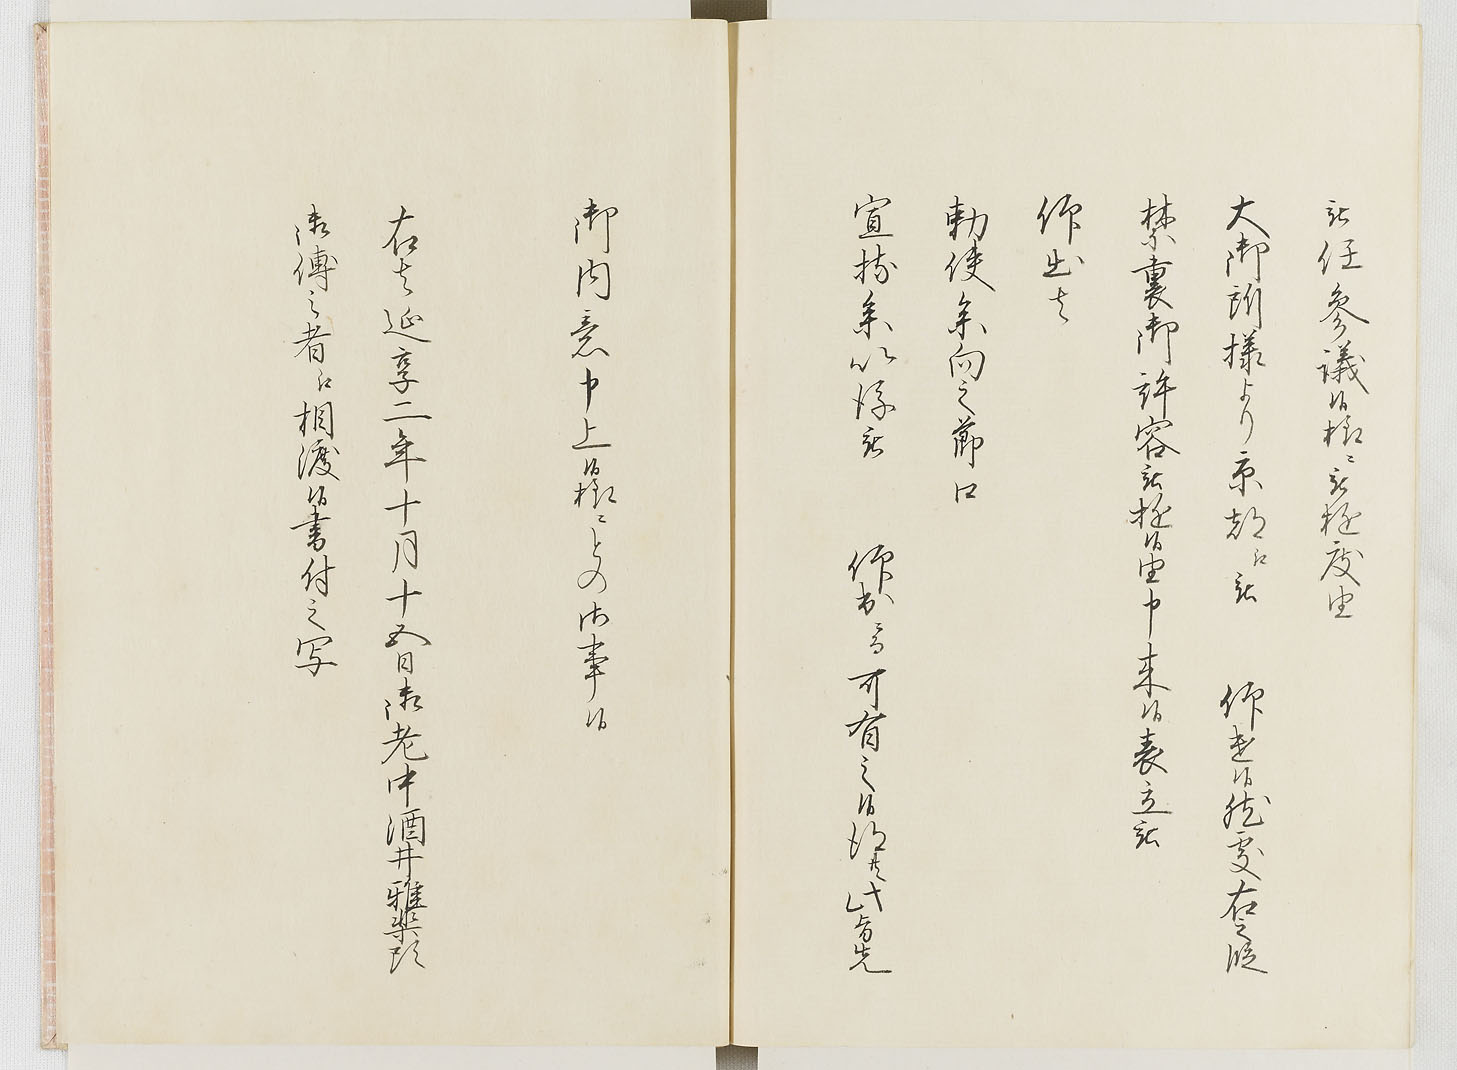 被任参議候様ニ被遊度由
大御所様より京都江被　仰進候処ニ右之段
禁裏御許容被遊候由申来候表立被
仰出者
勅使参向之節口
宣持参以後被　仰出ニ而可有之候得共此旨先
御内意申上候様ニとの御事候
右者延享二年十月十五日御老中酒井雅楽頭
御傅之者江相渡候書付之写